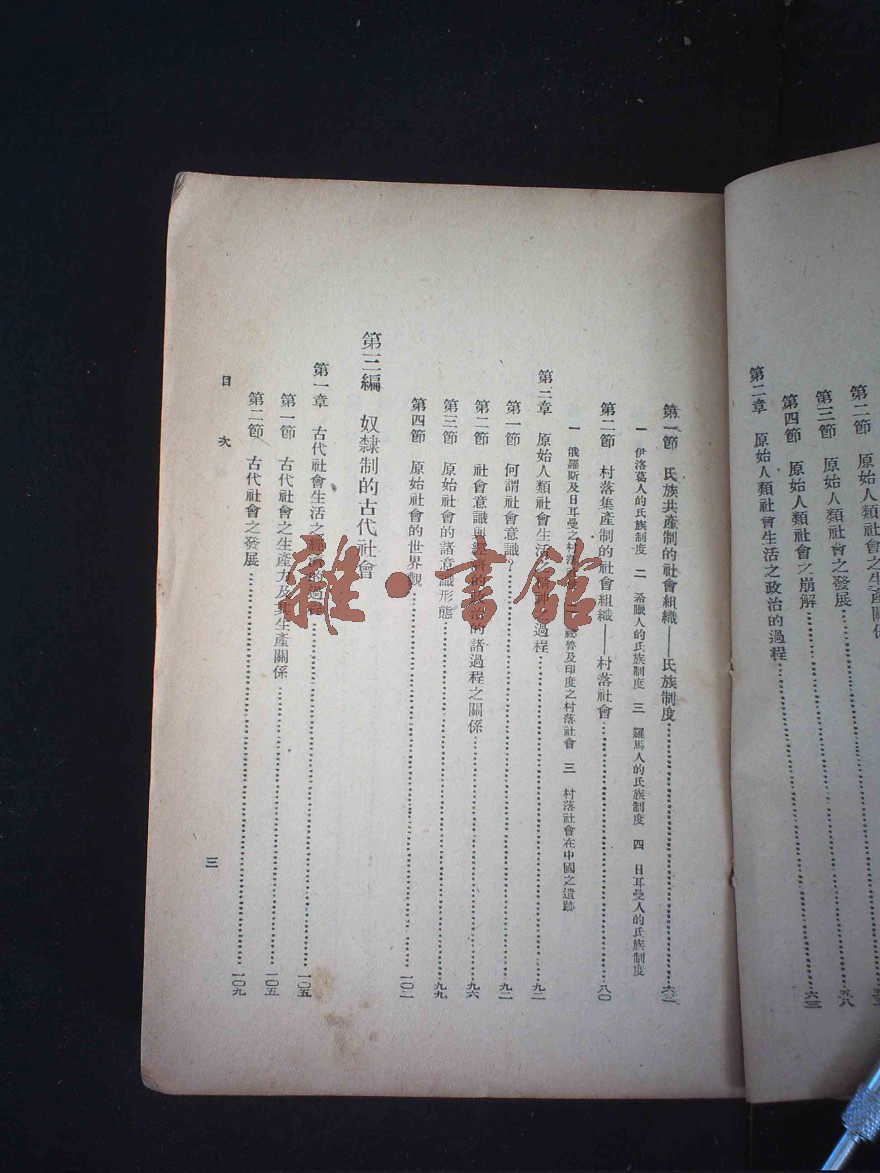 第二節 原始人類社會之生產關係
第三節 原始人類社會之發展……五八
第四節 原始人類社會之崩解……六三
第二章 原始人類社會生活之政治的過程
第一節 氏族共產制的社會組織——氏族制度……六三
一 伊洛葛人的氏族制度 二 希臘人的氏族制度 三 羅馬人的氏族制度 四 日耳曼人的氏族制度
第二節 村落集產制的社會組織——村落社會……八〇
一 俄羅斯及日耳曼之村落 二 秘魯及印度之村落社會 三 村落社會在中國之遺跡
第三章 原始人類社會生活之 過程……九二
第一節 何謂社會意識?……九二
第二節 社會意識與經濟的政治的諸過程之關係……九六
第三節 原始社會的諸意識形態……九九
第四節 原始社會的世界觀……一〇二
第三編 奴隸制的古代社會
第一章 古代社會生活之經濟的過程……一〇五
第一節 古代社會之生產力及其生產關係……一〇五
第二節 古代社會之發展……一〇九
目次
三
雜·書館